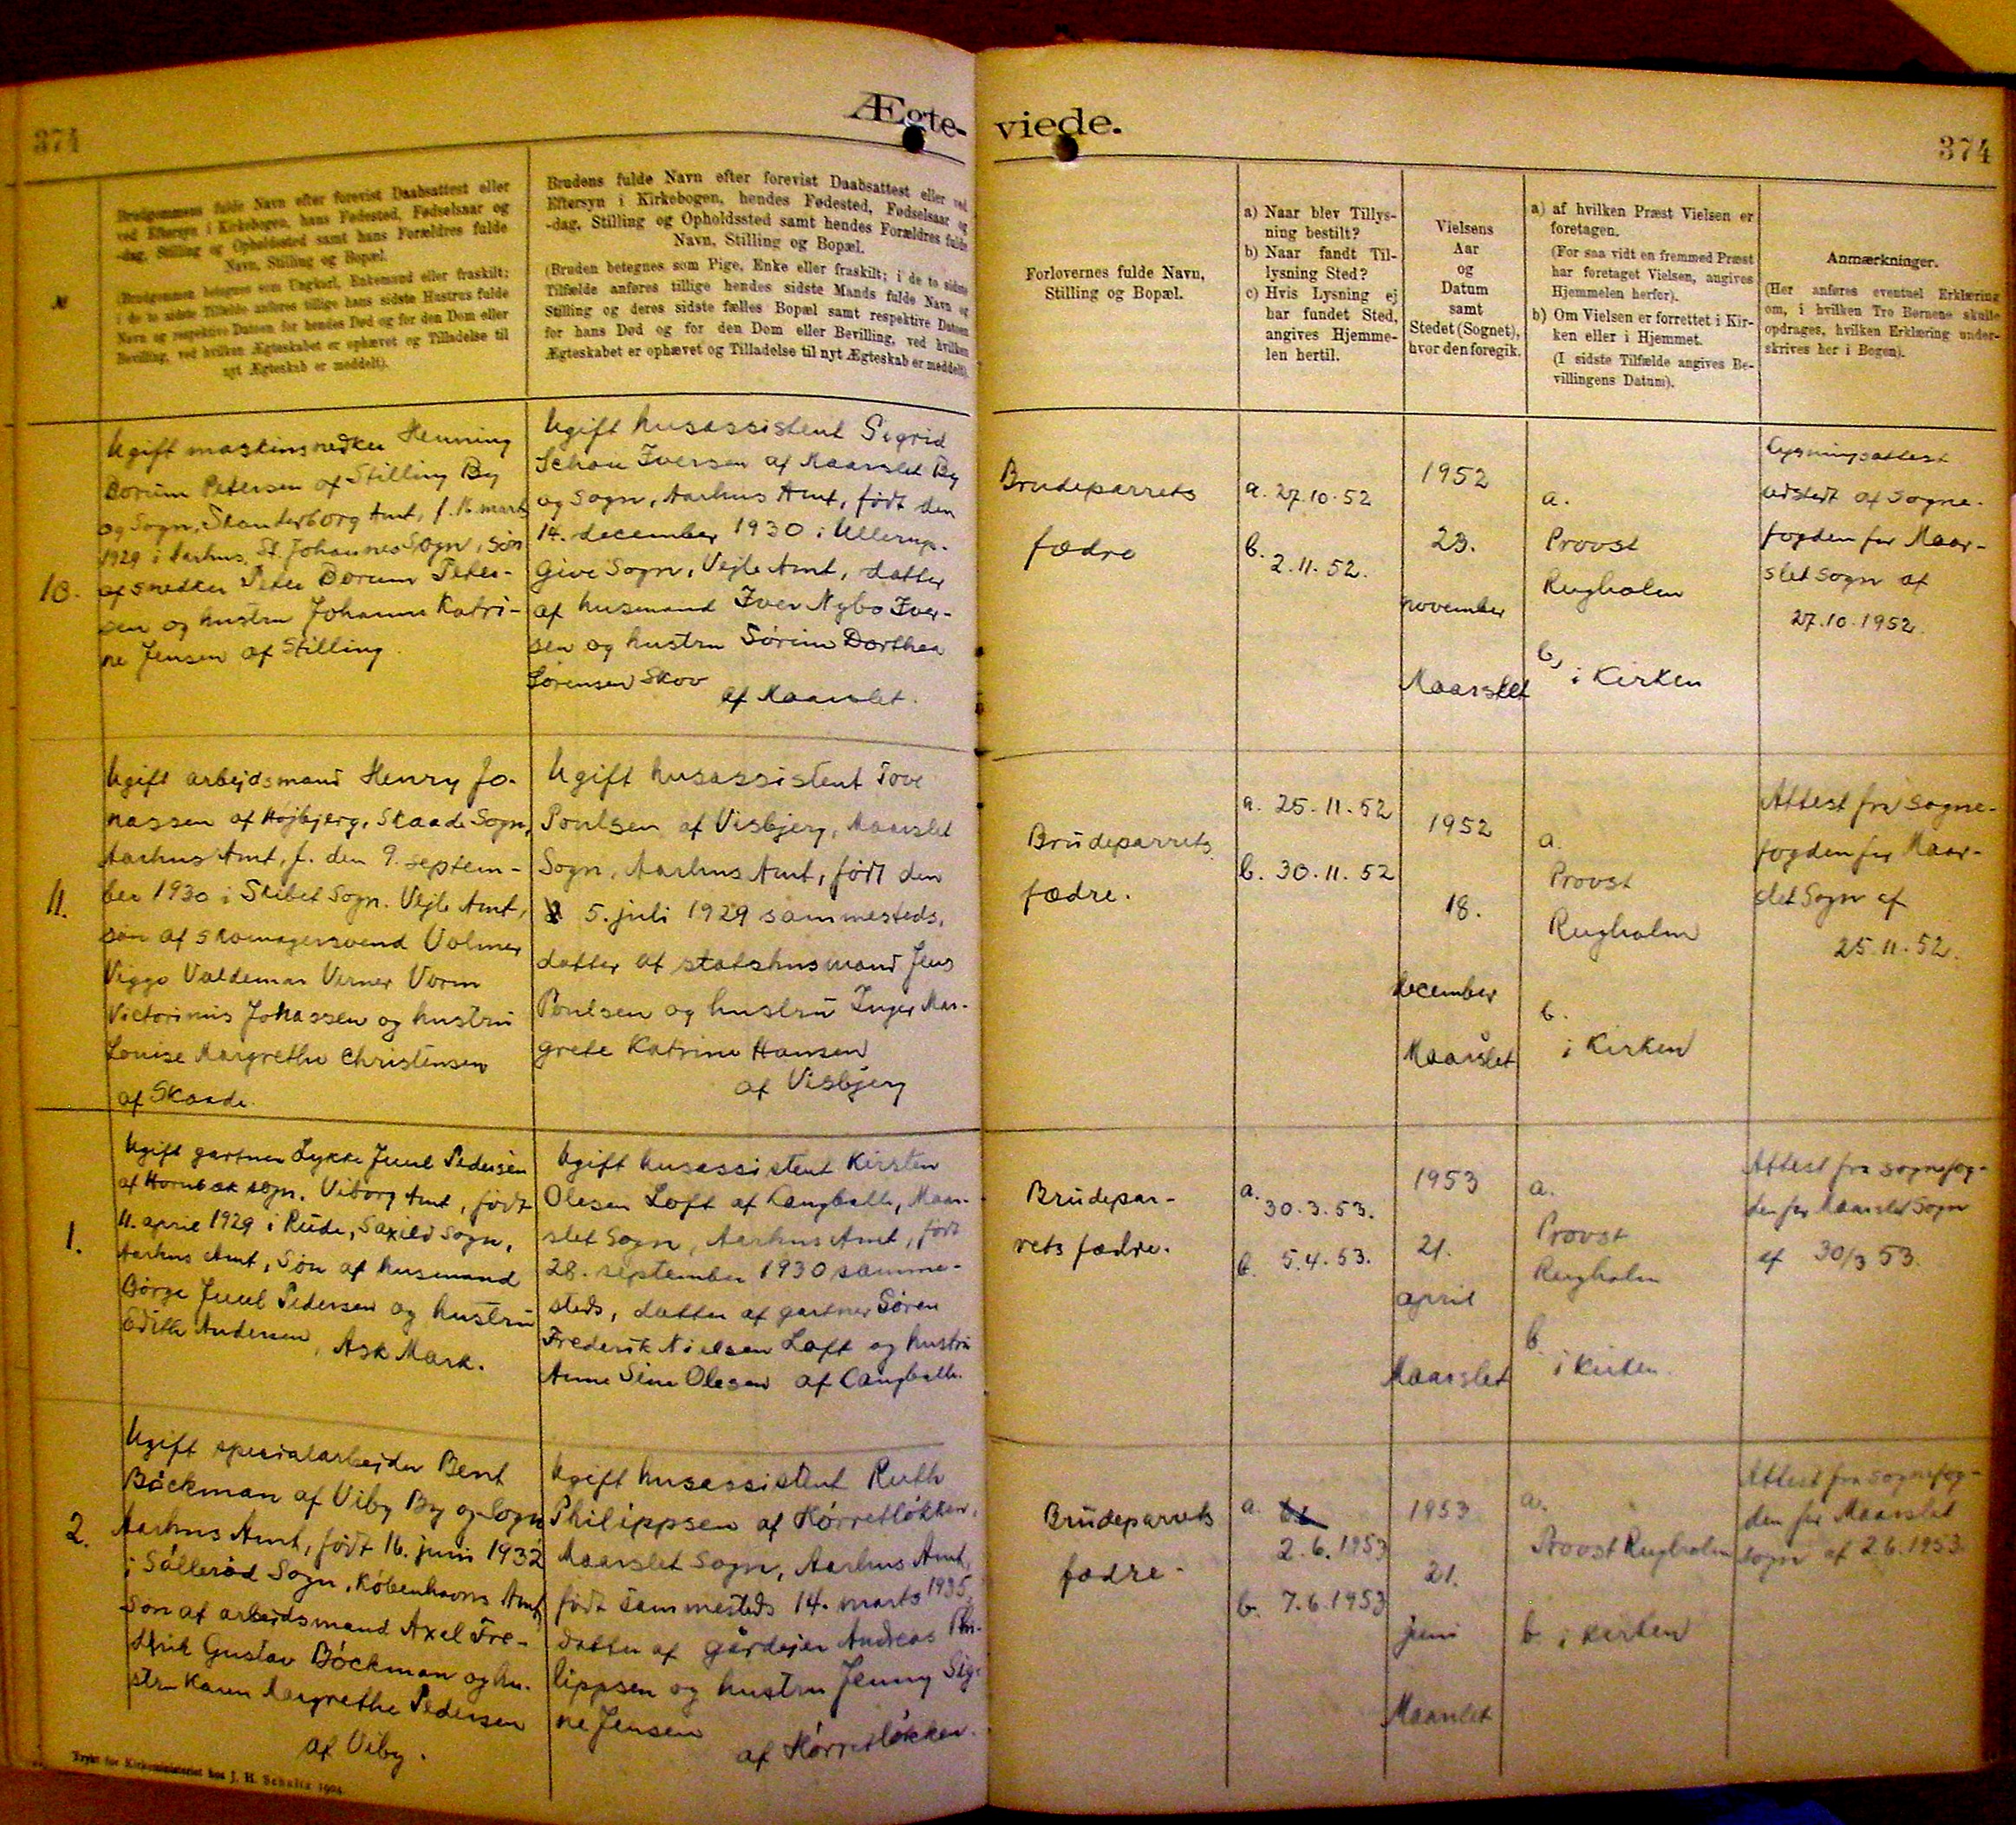 Ægte-
viede.
374
374
№
Brudgommens fulde Navn efter forevist Daabsattest eller
ved Eftersyn i Kirkebogen, hans Fødested, Fødselsaar og
-dag, Stilling og Opholdssted samt hans Forældres fulde
Navn, Stilling og Bopæl.
(Brudgommen betegnes som Ungkarl, Enkemand eller fraskilt;
i de to sidste Tilfælde anføres tillige hans sidste Hustrus fulde
Navn og respektive Datoen for hendes Død og for den Dom eller
Bevilling, ved hvilken Ægteskabet er ophævet og Tilladelse til
nyt Ægteskab er meddelt).
Brudens fulde Navn efter forevist Daabsattest eller ved
Eftersyn i Kirkebogen, hendes Fødested, Fødselsaar og
-dag, Stilling og Opholdssted samt hendes Forældres fulde
Navn, Stilling og Bopæl.
(Bruden betegnes som Pige, Enke eller fraskilt; i de to sidste
Tilfælde anføres tillige hendes sidste Mands fulde Navn og
Stilling og deres sidste fælles Bopæl samt respektive Datoen
for hans Død og for den Dom eller Bevilling, ved hvilken
Ægteskabet er ophævet og Tilladelse til nyt Ægteskab er meddelt).
Forlovernes fulde Navn,
Stilling og Bopæl.
a) Naar blev Tillys-
ning bestilt?
b) Naar fandt Til-
lysning Sted?
c) Hvis Lysning ej
har fundet Sted,
angives Hjemme-
len hertil.
Vielsens
Aar
og
Datum
samt
Stedet (Sognet),
hvor den foregik.
a) af hvilken Præst Vielsen er
foretagen.
(For saa vidt en fremmed Præst
har foretaget Vielsen, angives
Hjemmelen herfor).
b) Om Vielsen er forrettet i Kir-
ken eller i Hjemmet.
(I sidste Tilfælde angives Be-
villingens Datum).
Anmærkninger.
(Her anføres eventuel Erklæring
om, i hvilken Tro Børnene skulle
opdrages, hvilken Erklæring under-
skrives her i Bogen).
10.
Ugift maskinsnedker Henning
Dorum Petersen af Stilling By
og Sogn, Skanderborg Amt, f. 16. marts
1929 i Aarhus, St. Johannes Sogn, søn
af snedker Peter Dorum Peter-
sen og hustru Johanne Katri-
ne Jensen af Stilling.
Ugift husassistent Sigrid
Schou Iversen af Maarslet By
og Sogn, Aarhus Amt, født den
14. december 1930 i Ullerup.
Give Sogn, Vejle Amt, datter
af husmand Iver Nybo Iver-
sen og hustru Sørine Dorthea
Sørensen Skov
af Maarslet.
Brudeparrets
fædre
a. 27.10.52
b. 2.11.52.
1952
23.
november
Maarslet
a.
Provst
Rugholm
b, i Kirken
Lysningsattest
udstedt af Sogne-
fogden for Maar-
slet Sogn af
27.10.1952.
11.
Ugift arbejdsmand Henry Jo-
nassen af Højbjerg, Skaade Sogn,
Aarhus Amt, f. den 9. septem-
ber 1930 i Skibet Sogn. Vejle Amt,
søn af skomagersvend Volmer
Viggo Valdemar Verner Vorm
Victorinus Johassen og hustru
Louise Margrethe Christensen
af Skaade.
Ugift husassistent Tove
Poulsen af Visbjerg, Maarslet
Sogn, Aarhus Amt, født den
5. juli 1929 sammesteds,
datter af statshusmand Jens
Poulsen og hustru Inger Mar-
grete Katrine Hansen
af Visbjerg
Brudeparrets
fædre.
a. 25.11.52
b. 30.11.52
1952
18.
december
Maarslet
a.
Provst
Rugholm
b.
i Kirken
Attest fra Sogne-
fogden for Maar-
slet Sogn af
25.11.52.
1.
Ugift gartner Lykke Juul Pedersen
af Hornbæk sogn. Viborg Amt, født
11. april 1929 i Rude, Saxild Sogn,
Aarhus Amt, Søn af husmand
Børge Juul Pedersen og hustru
Edith Andersen, Ask Mark.
Ugift husassistent Kirsten
Olesen Loft af Langballe, Maar-
slet Sogn, Aarhus Amt, født
28. september 1930 samme-
steds, datter af gartner Søren
Frederik Nielsen Loft og hustru
Anne Sine Olesen af Langballe.
Brudepar-
rets fædre.
a.
30.3.53.
b. 5.4.53.
1953
21.
april
Maarslet
a.
Provst
Rugholm
b.
i Kirken.
Attest fra sognefog-
den for Maarslet Sogn
af 30/3 53.
2.
Ugift specialarbejder Bent
Böckman af Viby By og Sogn
Aarhus Amt, født 16. juni 1932
i Søllerød Sogn, Københavns Amt,
søn af arbejdsmand Axel Fre-
drik Gustav Böckman og hu-
stru Karen Margrethe Pedersen
af Viby.
Ugift husassistent Ruth
Philippsen af Hørretløkken,
Maarslet Sogn, Aarhus Amt,
født sammesteds 14. marts 1935,
datter af gårdejer Andreas Phi-
lippsen og hustru Jenny Sig-
ne Jensen
af Hørretløkken.
Brudeparrets
fædre.
a.
2.6.1953
b. 7.6.1953
1953
21.
juni
Maarslet
a.
Provst Rugholm
b. i Kirken
Attest fra sognefog-
den for Maarslet
sogn af 2.6.1953.
Trykt for Kirkeministeriet hos J. H. Schultz